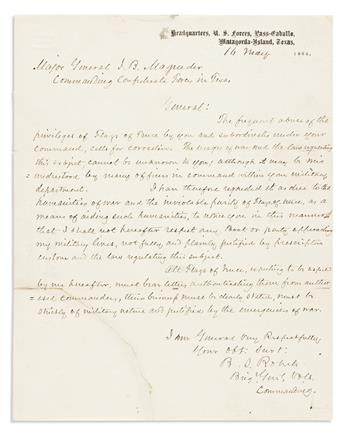 Headquarters, U. S. Forces, Pass-Caballo,
Matagorda-Island, Texas,
16 May 1864.
Major General J. B. Magruder
Commanding Confederate Forces in Texas
General:
The frequent abuses of the
privileges of Flags of Truce by you and subordinates under your
command, calls for correction. The usages of war and the laws regulating
this subject cannot be unknown to you; although it may be mis
= understood by many officers in command within your military
department.
I have therefore regarded it as due to the
humanities of war and the inviolable purity of Flags of Truce, as a
means of aiding such humanities, to notice you in this manner
that I shall not hereafter respect any Boat or party approaching
my military lines, not fully, and plainly justified by prescriptive
custom and the laws regulating this subject.
All Flags of Truce, expecting to be respected
by me hereafter, must bear letters authenticating them from author
= ised commanders, their business must be clearly stated, must be
strictly of military nature and justified by the emergencies of war.
I am General Very Respectfully,
Your Obt. Servt:
B. S. Roberts
Brig. Genl. Vols.
Commanding.